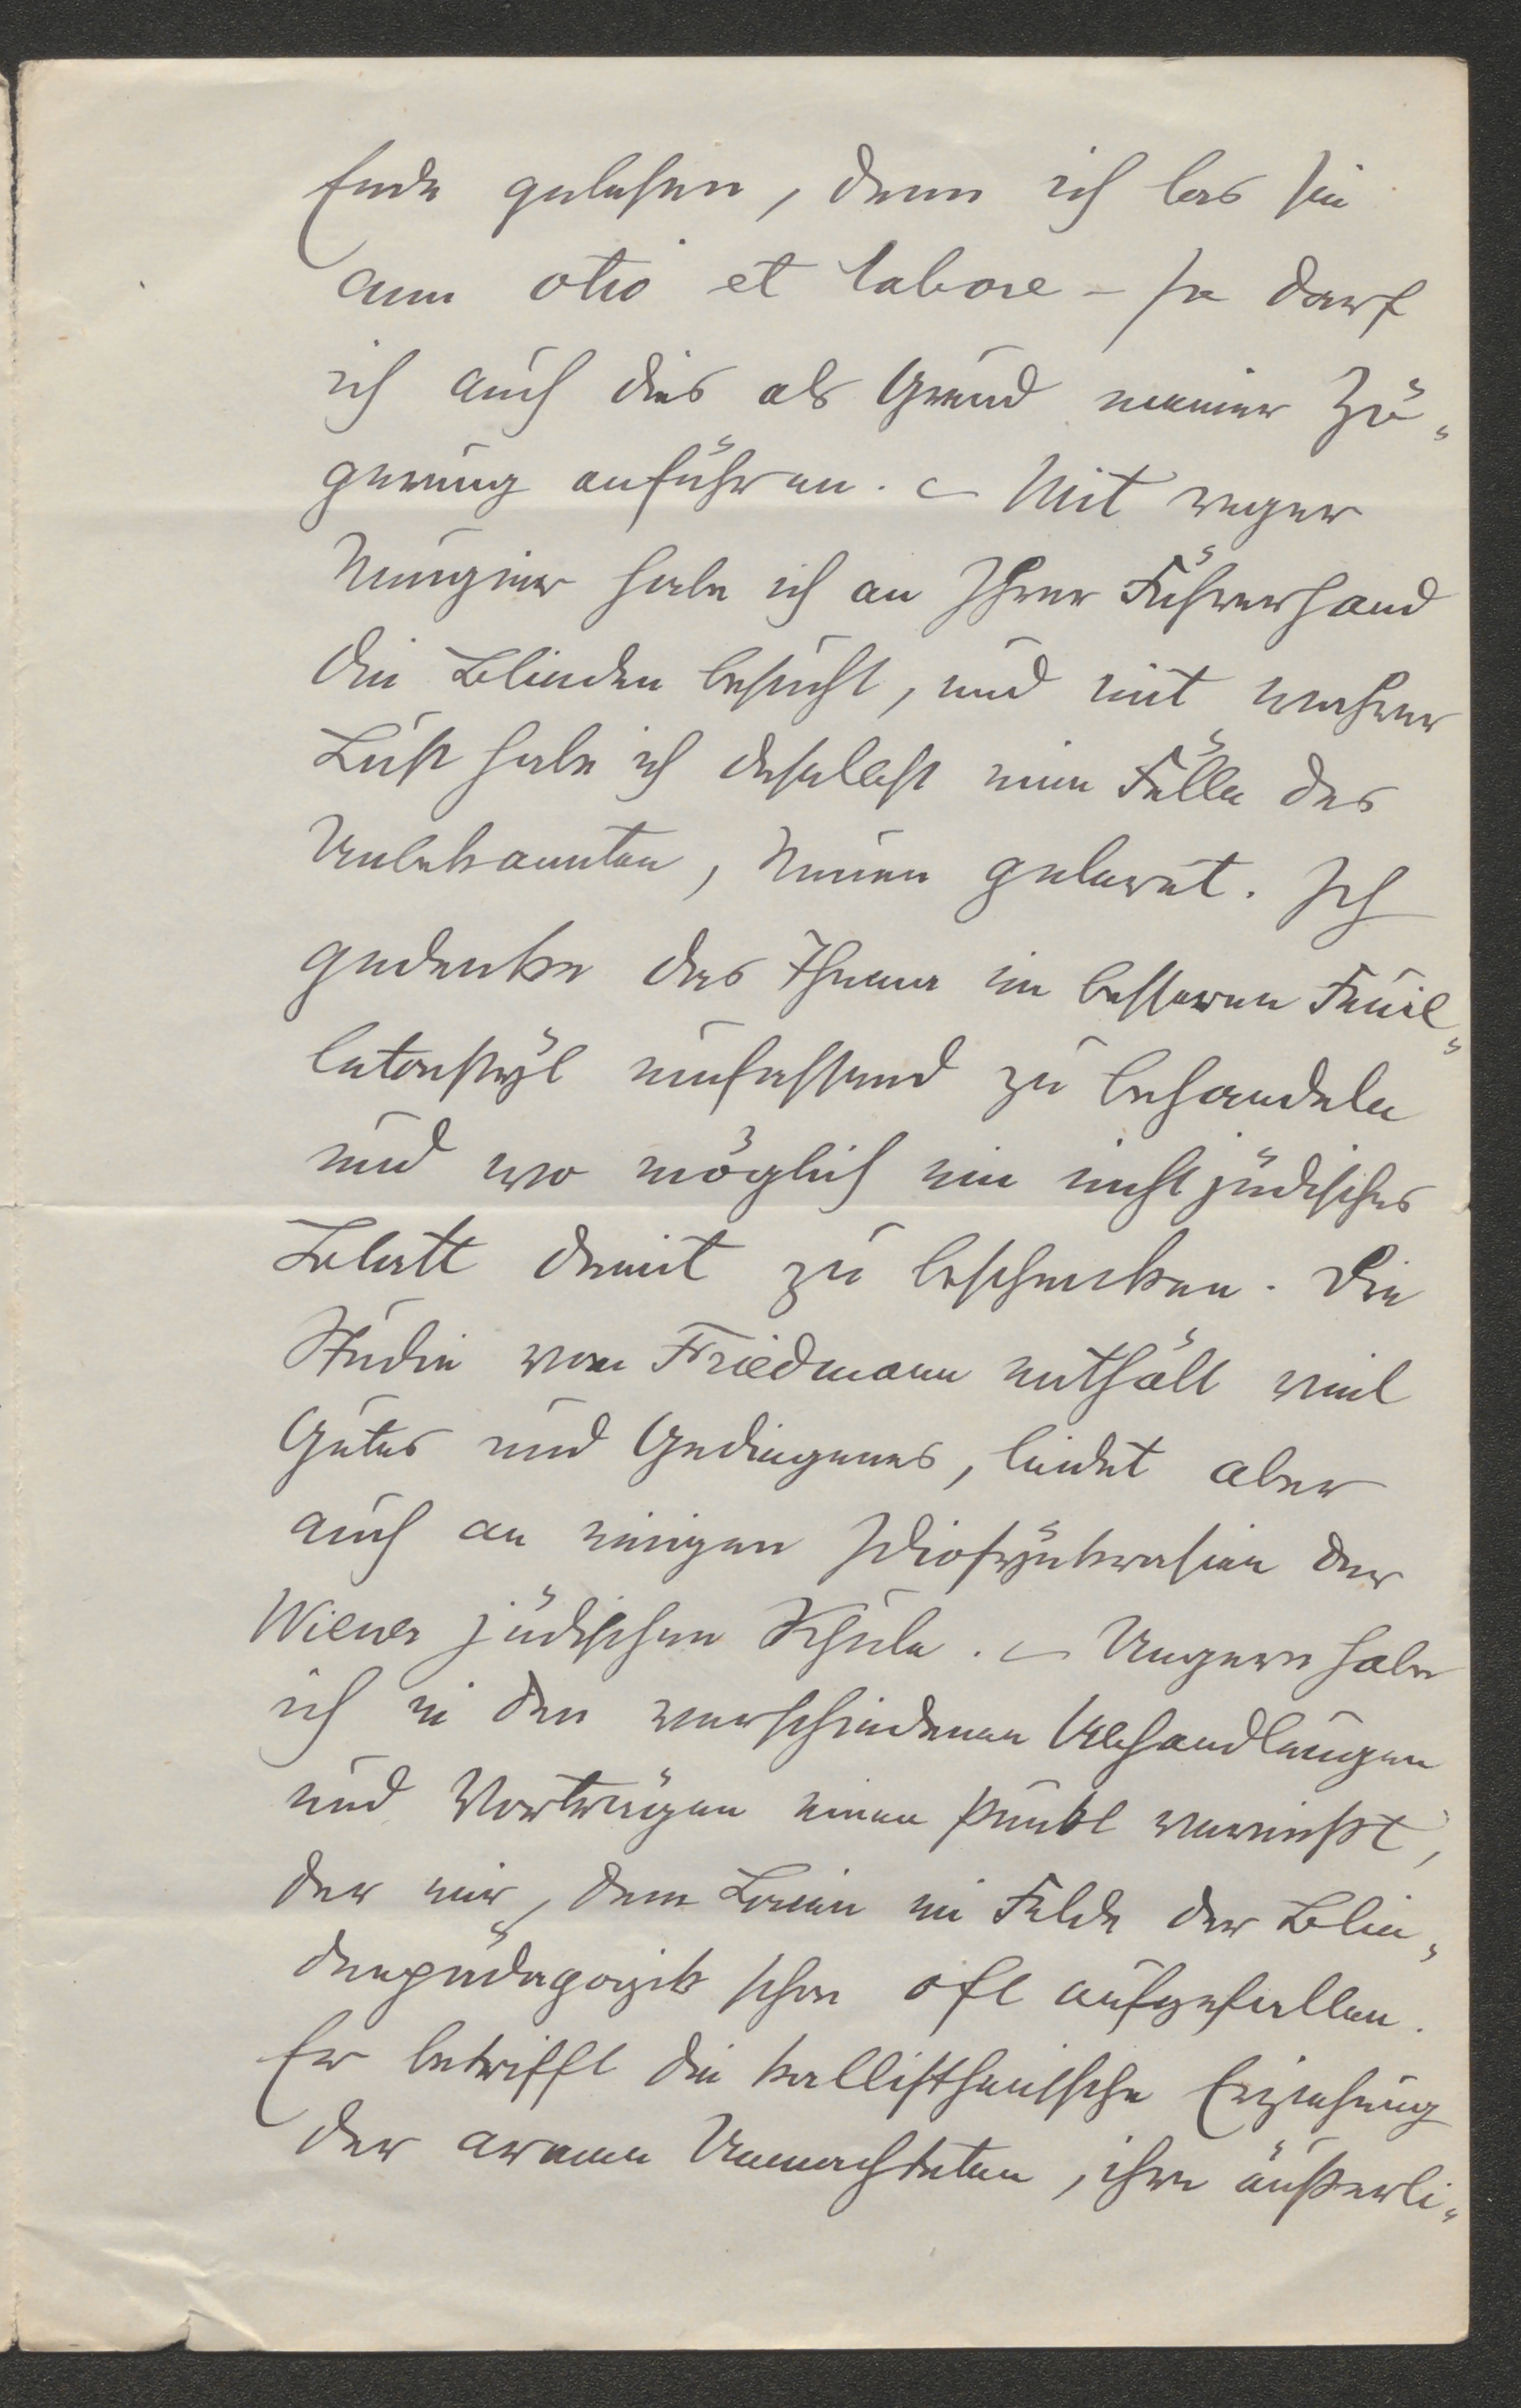 Ende gelesen, denn ich las sie
cum otio et labore – so darf
ich auch dies als Grund meiner Zö-
gerung anführen. – Mit reger
Neugier habe ich an Ihrer Führerhand
die Blinden besucht, und mit wahrer
Lust habe ich daselbst eine Fülle des
Unbekannten, Neuen gelernt. Ich
gedenke das Thema im besseren Feuil-
letonstyl umfassend zu behandeln
und wo möglich ein nicht jüdisches
Blatt damit zu beschenken. Die
Studie von Friedmann enthält viel
Gutes und Gediegenes, leidet aber
auch an einigen Idiosynkrasien der
Wiener jüdischen Schule. – Ungern habe
ich in den verschiedenen Abhandlungen
und Vorträgen einen Punkt vermißt,
der mir, dem Laien im Felde der Blin-
denpädagogik schon oft aufgefallen.
Er betrifft die kallisthenische Erziehung
der armen Umnachteten, ihre äußerli-